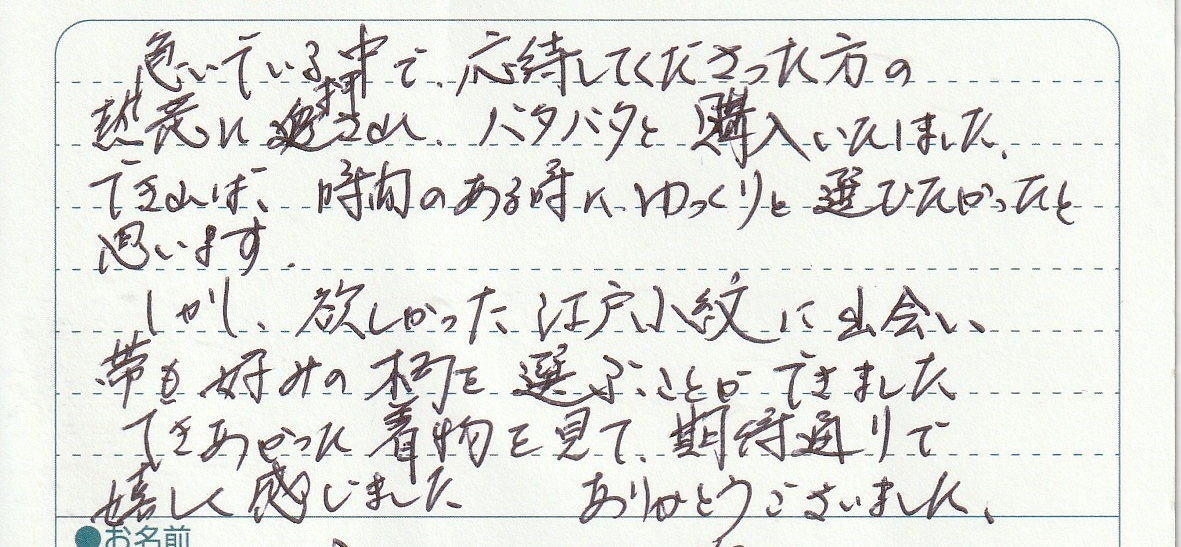 急いでいる中で、応待してくださった方の
熱意に押され、バタバタと購入いたしました。
できれば、時間のある時に、ゆっくりと選びたかったと
思います。
しかし、欲しかった江戸小紋に出会い、
帯も好みの柄を選ぶことができました
できあがった着物を見て、期待通りで
嬉しく感じました ありがとうございました。
●お名前